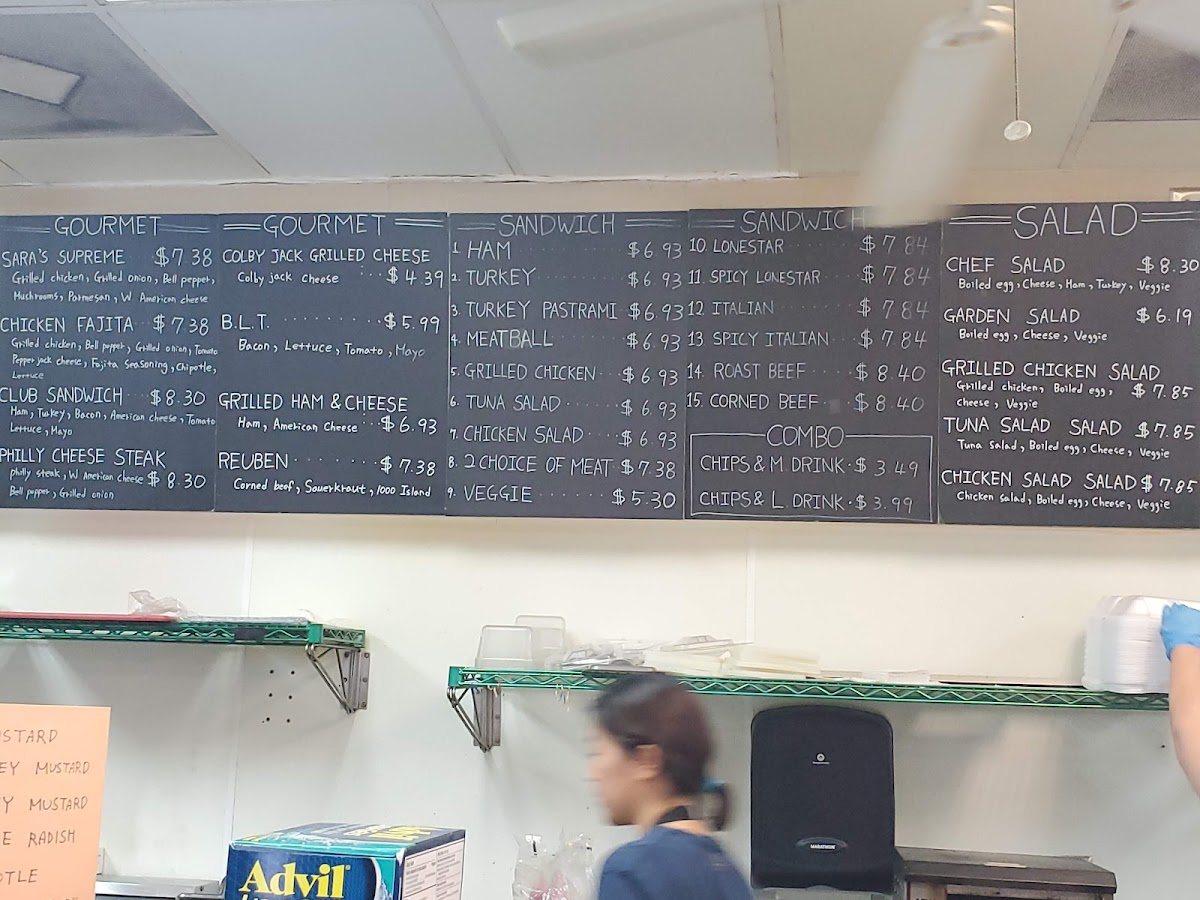 GOURMET
SARA'S SUPREME $7.38
Grilled chicken, Grilled onion, Bell pepper,
Muchrooms, Parmesan, W. American cheese
CHICKEN FAJITA $7.38
Grilled chicken, Bell pepper, Grilled onion, Tomato
Pepper jack cheese, Fajita Seasoning, Chipotle,
Lettuce
CLUB SANDWICH $8.30
Ham, Turkey, Bacon, American cheese, Tomato
Lettuce, Mayo
PHILLY CHEESE STEAK
philly steak, W American cheese $8.30
Bell pepper, Grilled onion
GOURMET
COLBY JACK GRILLED CHEESE
Colby jack cheese $4.39
B.L.T. $5.99
Bacon, Lettuce, Tomato, Mayo
GRILLED HAM & CHEESE
Ham, American Cheese $6.93
REUBEN $7.38
Corned beef, Sauerkraut, 1000 Island
SANDWICH
1. HAM $6.93
2. TURKEY $6.93
3. TURKEY PASTRAMI $6.93
4. MEATBALL $6.93
5. GRILLED CHICKEN $6.93
6. TUNA SALAD $6.93
7. CHICKEN SALAD $6.93
8. 2 CHOICE OF MEAT $7.38
9. VEGGIE $5.30
SANDWICH
10. LONESTAR $7.84
11. SPICY LONESTAR $7.84
12. ITALIAN $7.84
13. SPICY ITALIAN $7.84
14. ROAST BEEF $8.40
15. CORNED BEEF $8.40
COMBO
CHIPS & M. DRINK $3.49
CHIPS & L. DRINK $3.99
SALAD
CHEF SALAD $8.30
Boiled egg, Cheese, Ham, Turkey, Veggie
GARDEN SALAD $6.19
Boiled egg, Cheese, Veggie
GRILLED CHICKEN SALAD
Grilled chicken, Boiled egg, $7.85
cheese, Veggie
TUNA SALAD SALAD $7.85
Tuna Salad, Boiled egg, Cheese, Veggie
CHICKEN SALAD SALAD $7.85
Chicken salad, Boiled egg, Cheese, Veggie
USTARD
EY MUSTARD
Y MUSTARD
E RADISH
OTLE
Advil
MARATHON